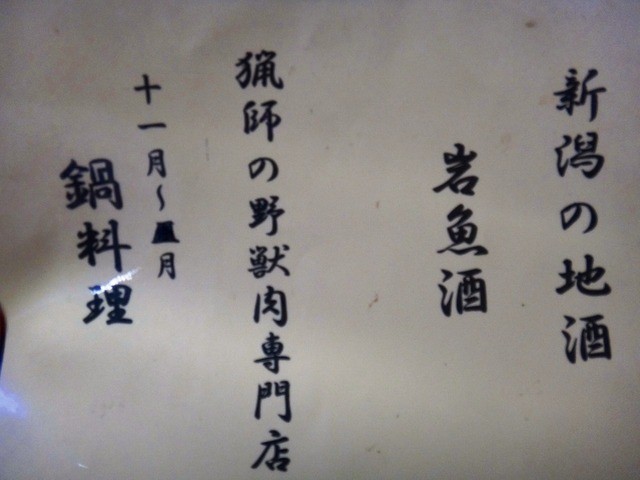 新潟の地酒
岩魚酒
猟師の野獣肉専門店
十一月～月
鍋料理